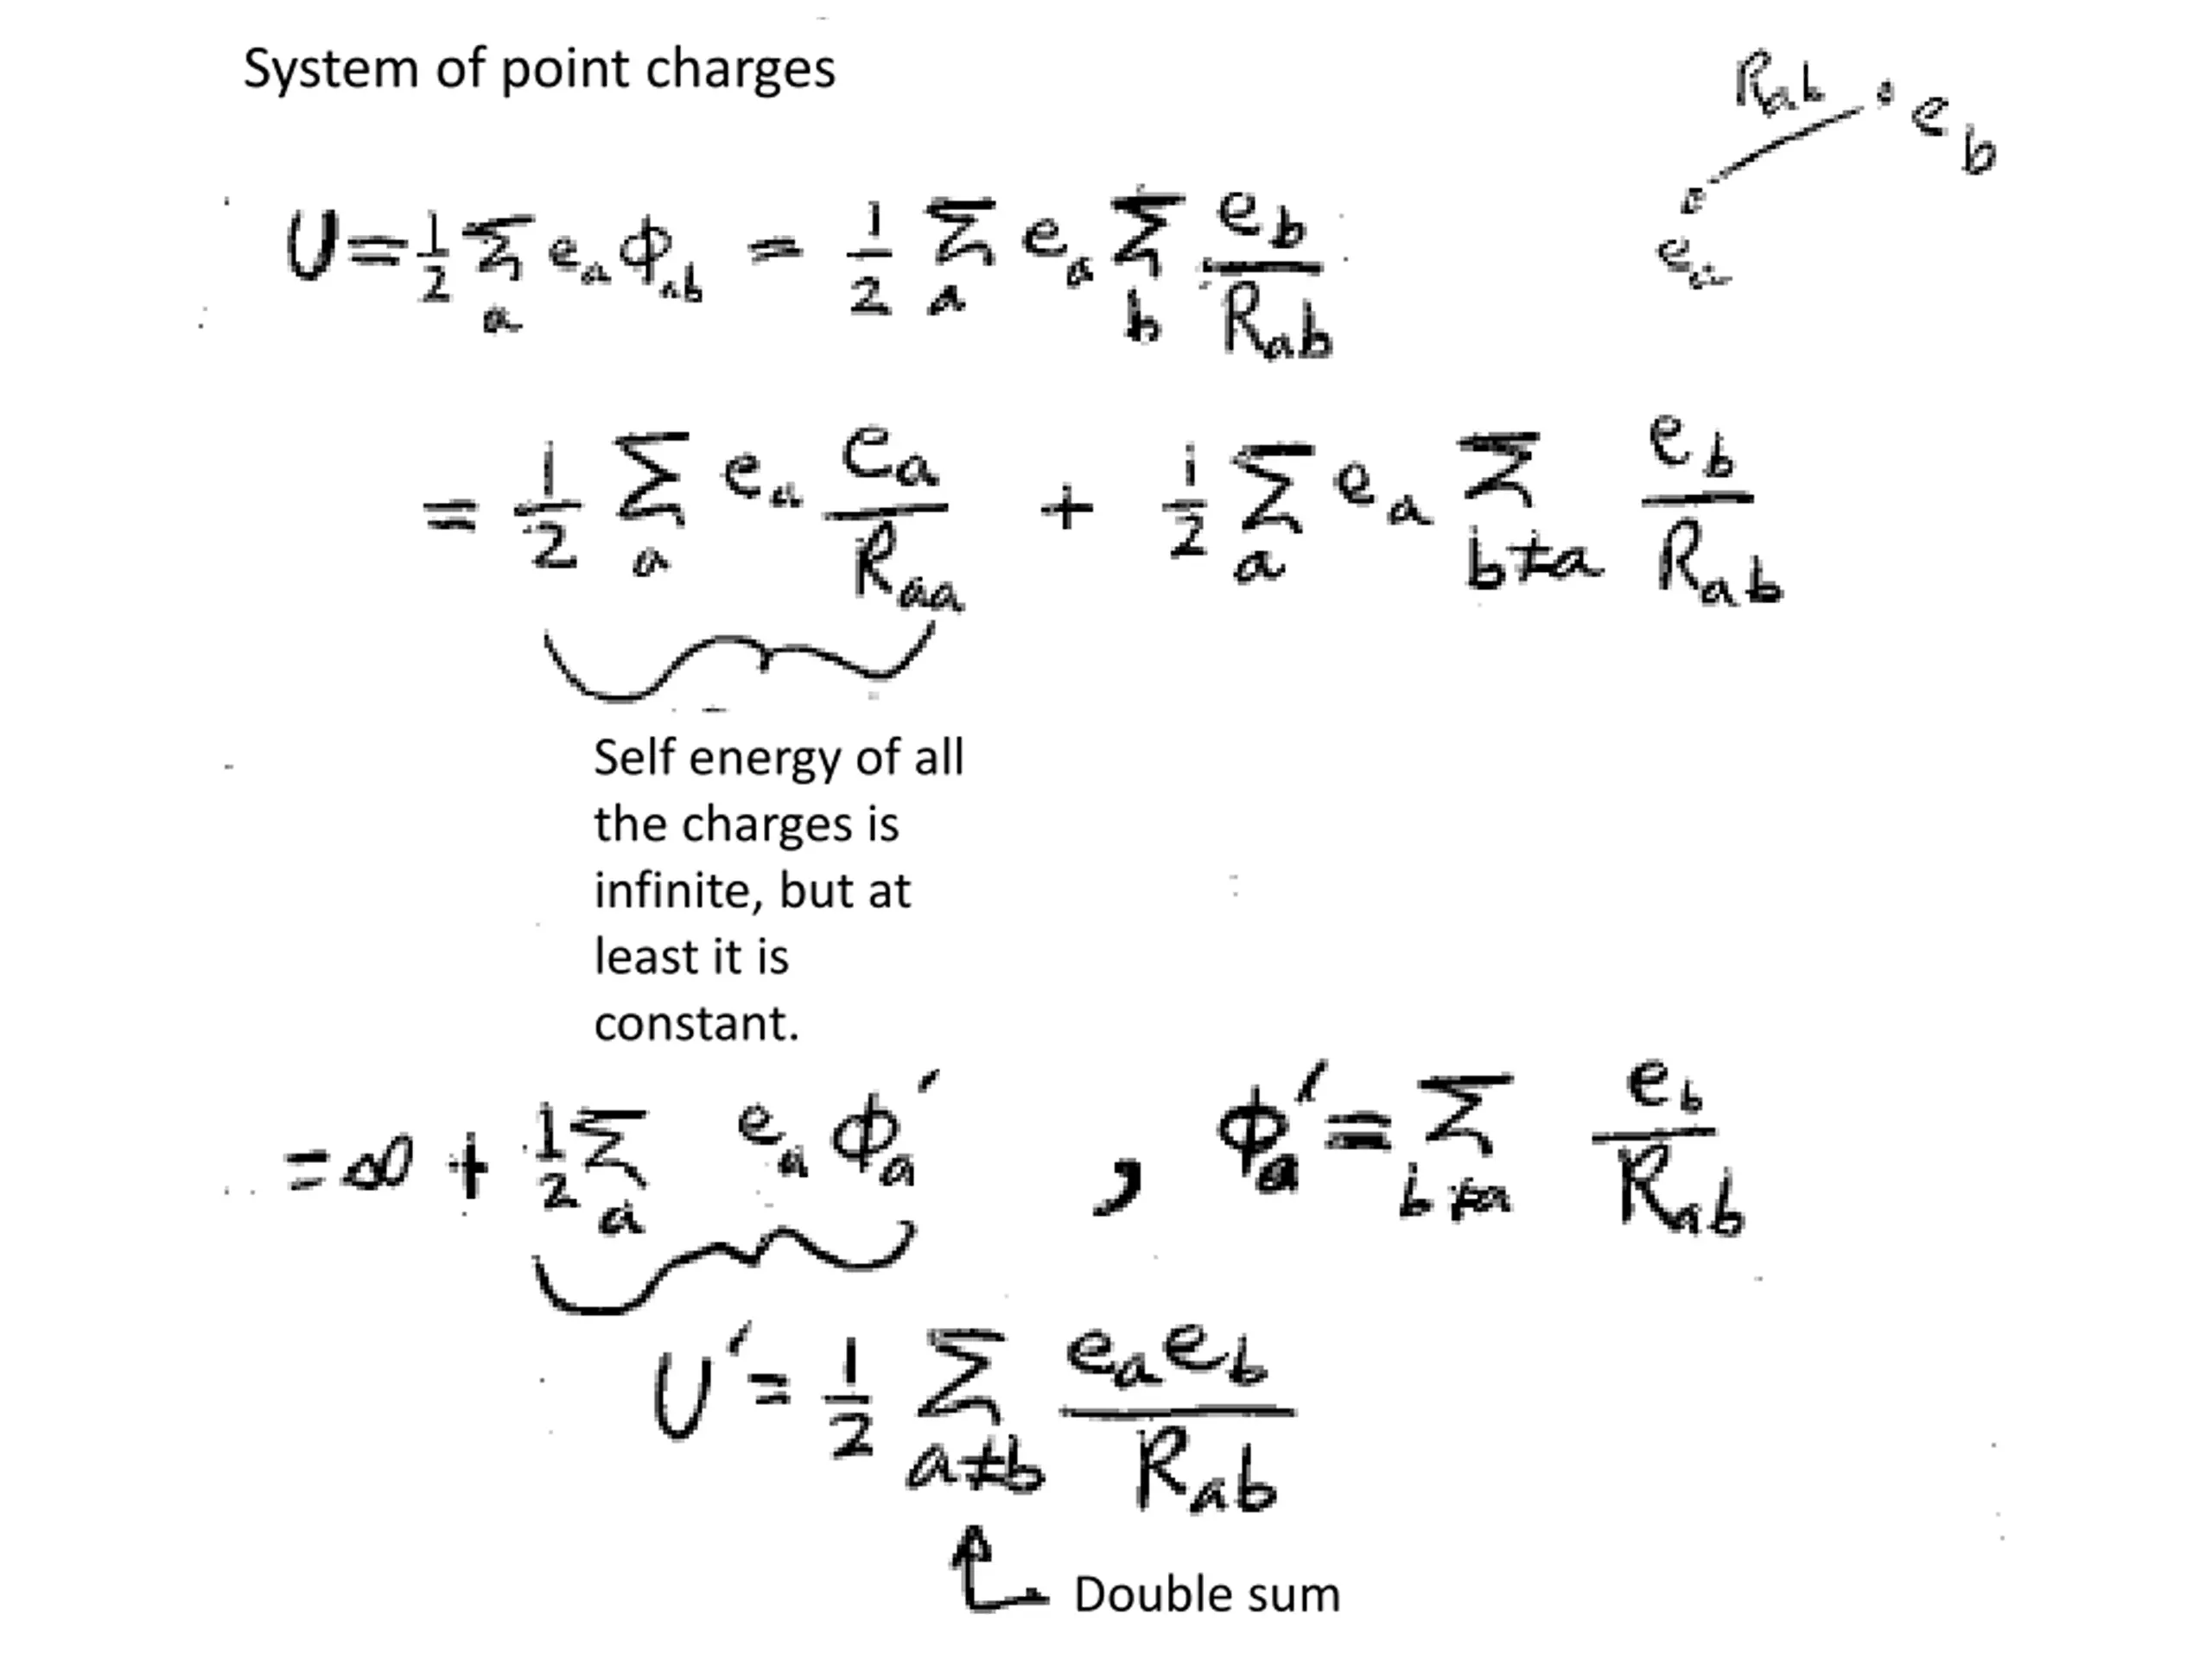 System of point charges
R_ab e_b
e_a
U = 1/2 Σ_a e_a ϕ_ab = 1/2 Σ_a e_a Σ_b e_b/R_ab
= 1/2 Σ_a e_a e_a/R_aa + 1/2 Σ_a e_a Σ_b≠a e_b/R_ab
Self energy of all
the charges is
infinite, but at
least it is
constant.
= ∞ + 1/2 Σ_a e_a ϕ_a′ , ϕ_a′ = Σ_b≠a e_b/R_ab
U′ = 1/2 Σ_a≠b e_a e_b/R_ab
Double sum